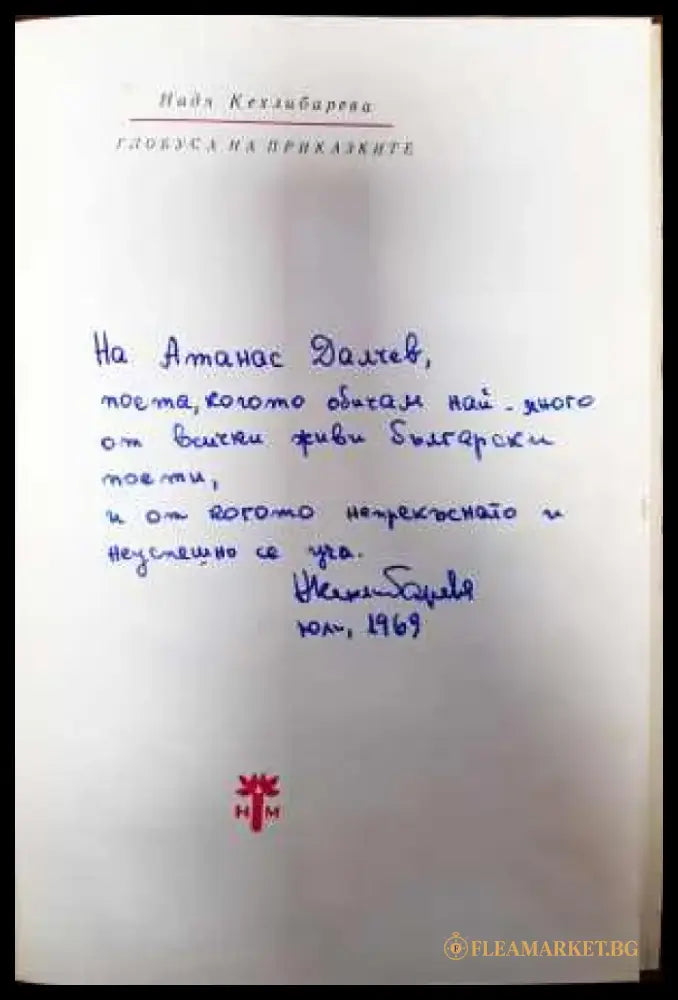 Надя Кехлибарева
ГЛОБУСА НА ПРИКАЗКИТЕ
На Атанас Далчев,
поета, когото обичам най-много
от всички живи български
поети,
и от когото непрекъснато и
неуспешно се уча.
НКехлибарева
юли, 1969
Н М
FLEAMARKET.BG